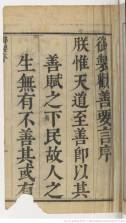 御製勸善要言序
朕惟天道至善即以其
善賦之下民故人之
生無有不善其或有